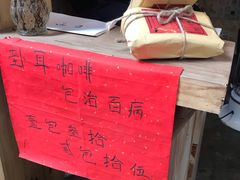 刵耳咖啡
包治百病
壹包叁拾
贰包拾伍